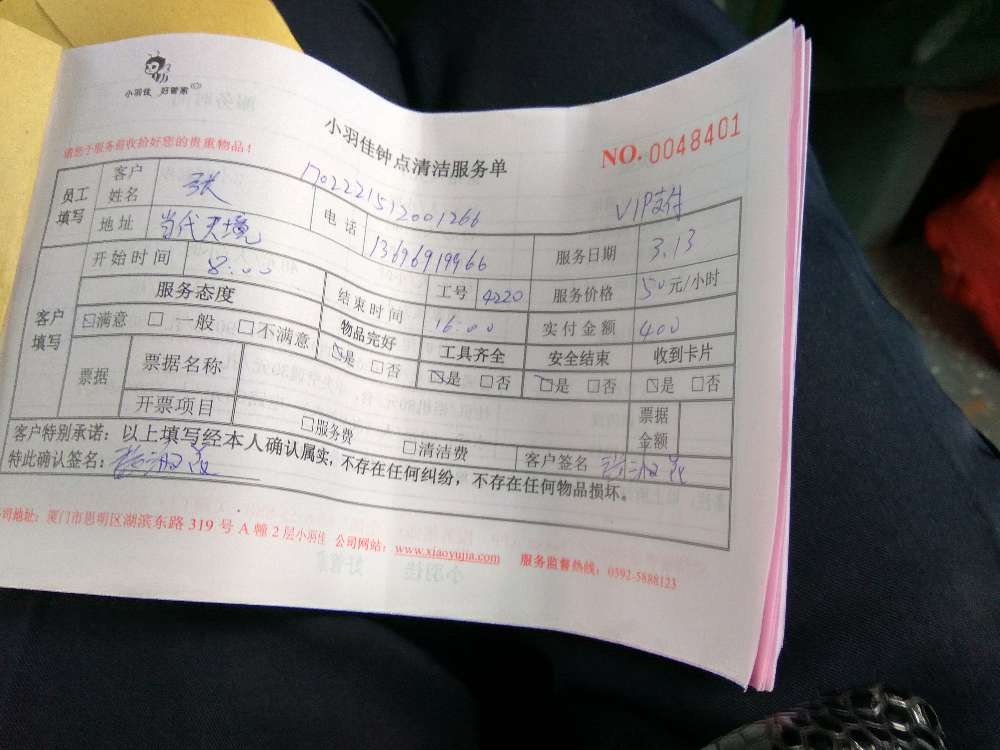 小羽佳 好管家
小羽佳钟点清洁服务单
NO. 0048401
请您于服务前收拾好您的贵重物品!
1702221512001266
VIP支付
员工填写 客户姓名 张 电话 13696919966 服务日期 3.13
地址 当代天境 工号 4220 服务价格 50元/小时
客户填写 开始时间 8:00 结束时间 16:00 实付金额 400
服务态度 物品完好 工具齐全 安全结束 收到卡片
☑满意 □一般 □不满意 ☑是 □否 ☑是 □否 ☑是 □否 ☑是 □否
票据 票据名称 票据金额
开票项目 □服务费 □清洁费 客户签名
客户特别承诺:以上填写经本人确认属实,不存在任何纠纷,不存在任何物品损坏。
特此确认签名:
司地址:厦门市思明区湖滨东路 319 号 A 幢 2 层小羽佳 公司网站:www.xiaoyujia.com 服务监督热线:0592-5888123